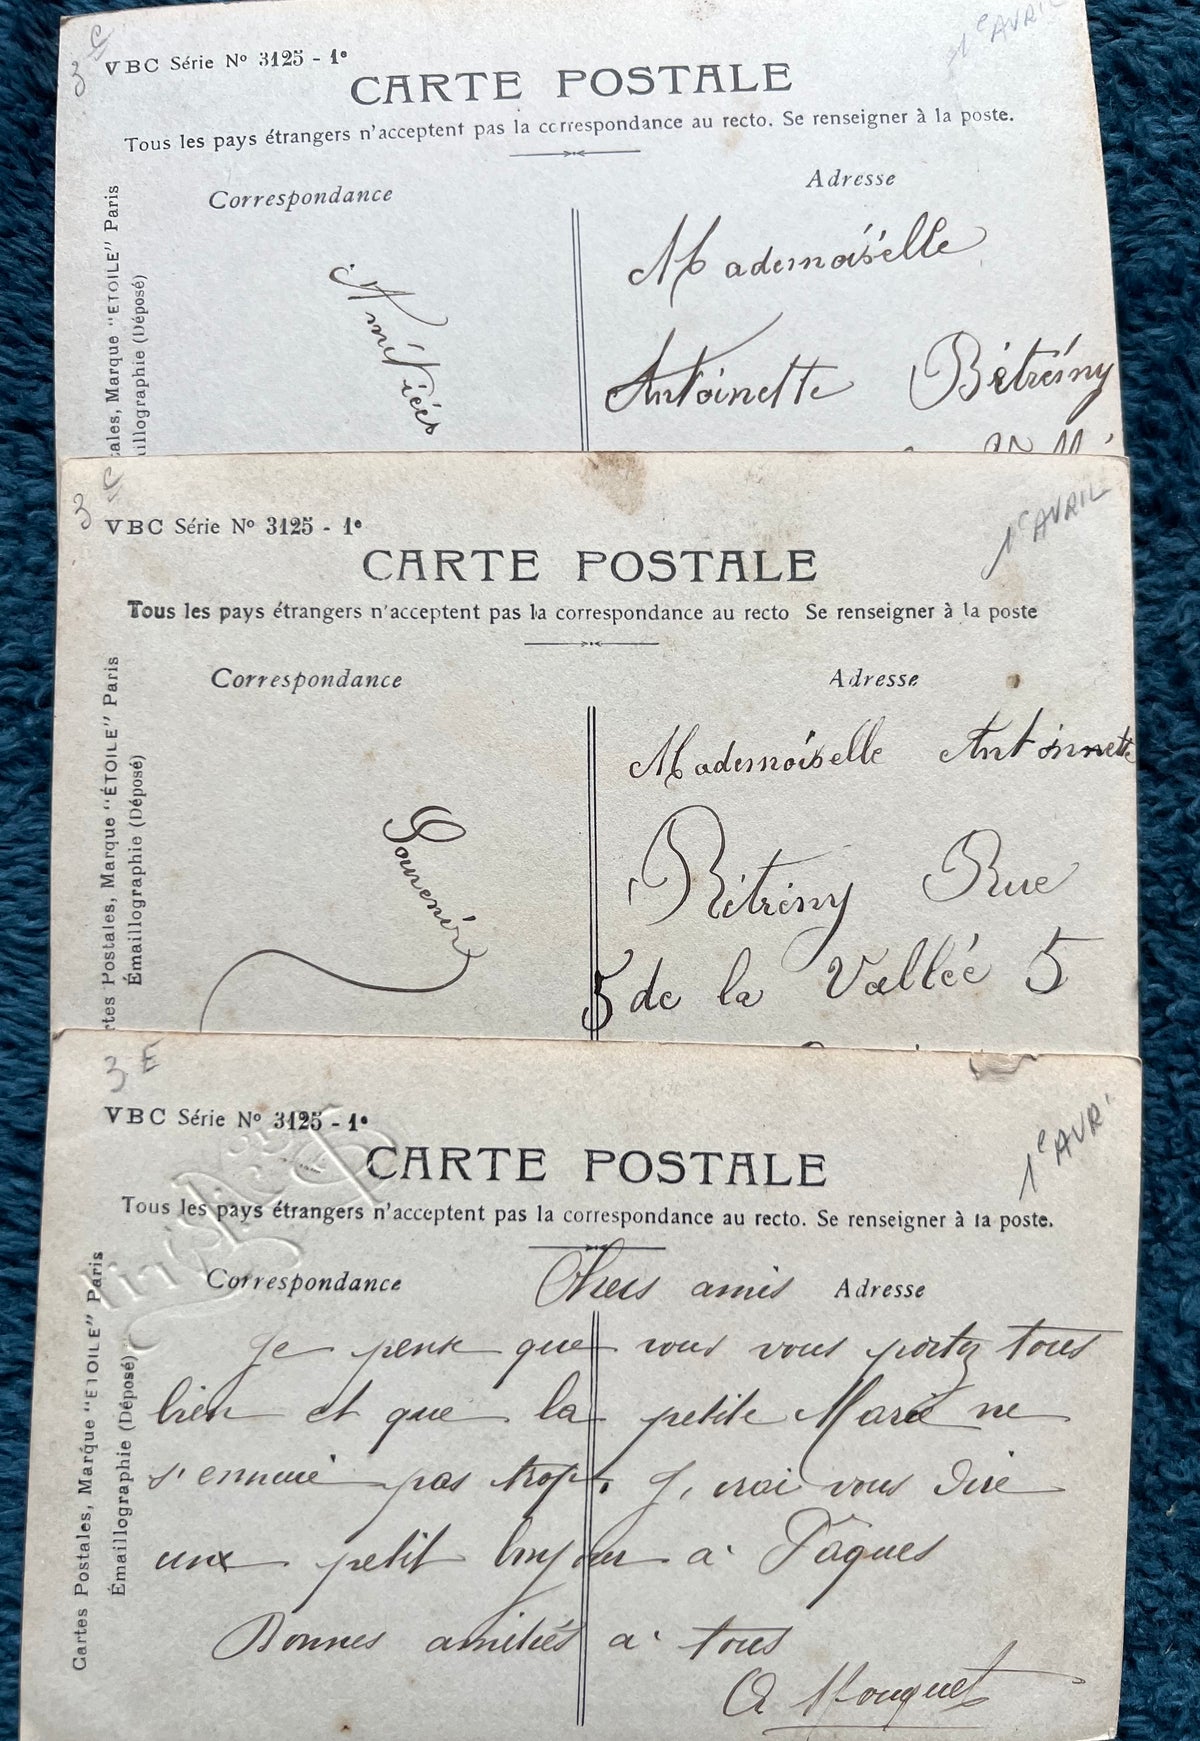 3 e
1e AVRIL
VBC Série Nº 3125 - 1e
CARTE POSTALE
Tous les pays étrangers n'acceptent pas la correspondance au recto. Se renseigner à la poste.
Correspondance
Adresse
ales, Marque "ETOILE" Paris
illographie (Déposé)
Amitiés
Mademoiselle
Antoinette Bétrémy
3 e
1e AVRIL
VBC Série Nº 3125 - 1e
CARTE POSTALE
Tous les pays étrangers n'acceptent pas la correspondance au recto Se renseigner à la poste
Correspondance
Adresse
rtes Postales, Marque "ÉTOILE" Paris
Émaillographie (Déposé)
Souvenir
Mademoiselle Antoinnette
Bétrémy Rue
5 de la Vallée 5
3 E
1e AVRI
VBC Série Nº 3125 - 1e
CARTE POSTALE
Tous les pays étrangers n'acceptent pas la correspondance au recto. Se renseigner à la poste.
Correspondance
Adresse
Cartes Postales, Marque "ETOILE" Paris
Émaillographie (Déposé)
Chers amis
Je pense que vous vous portez tous
bien et que la petite Marie ne
s'ennuie pas trop. J'irai vous dire
un petit bonjour à Pâques
Bonnes amitiés à tous